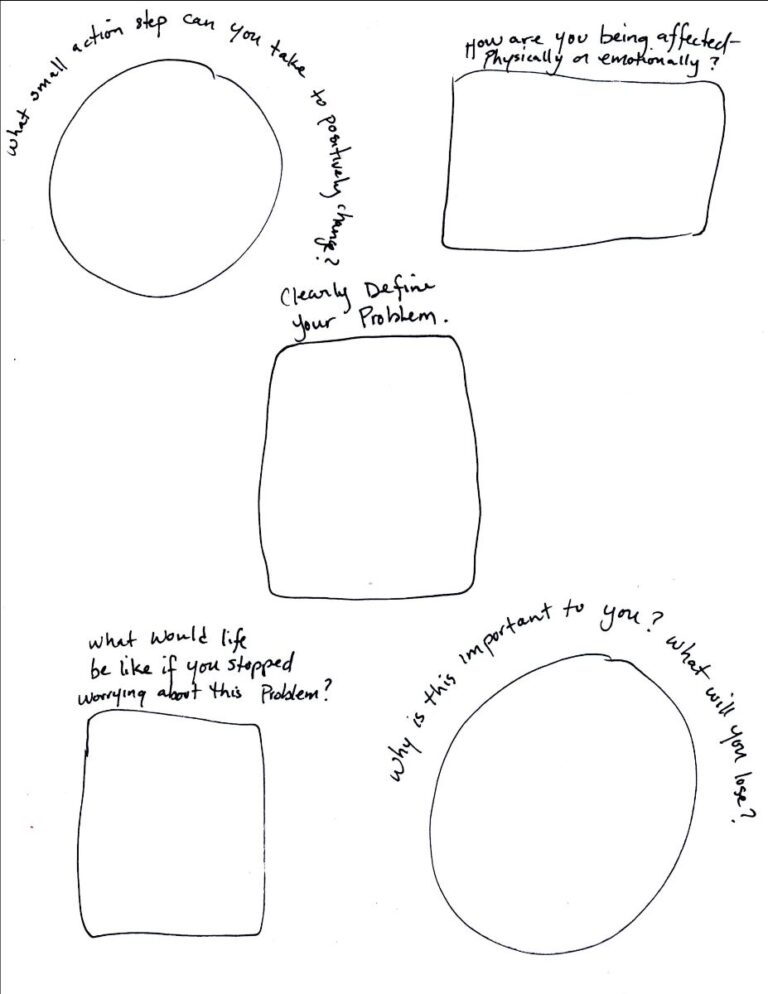 what small action step can you take to positively change?
How are you being affected-
Physically or emotionally?
Clearly Define
your Problem.
what would life
be like if you stopped
worrying about this Problem?
Why is this important to you? what will you lose?